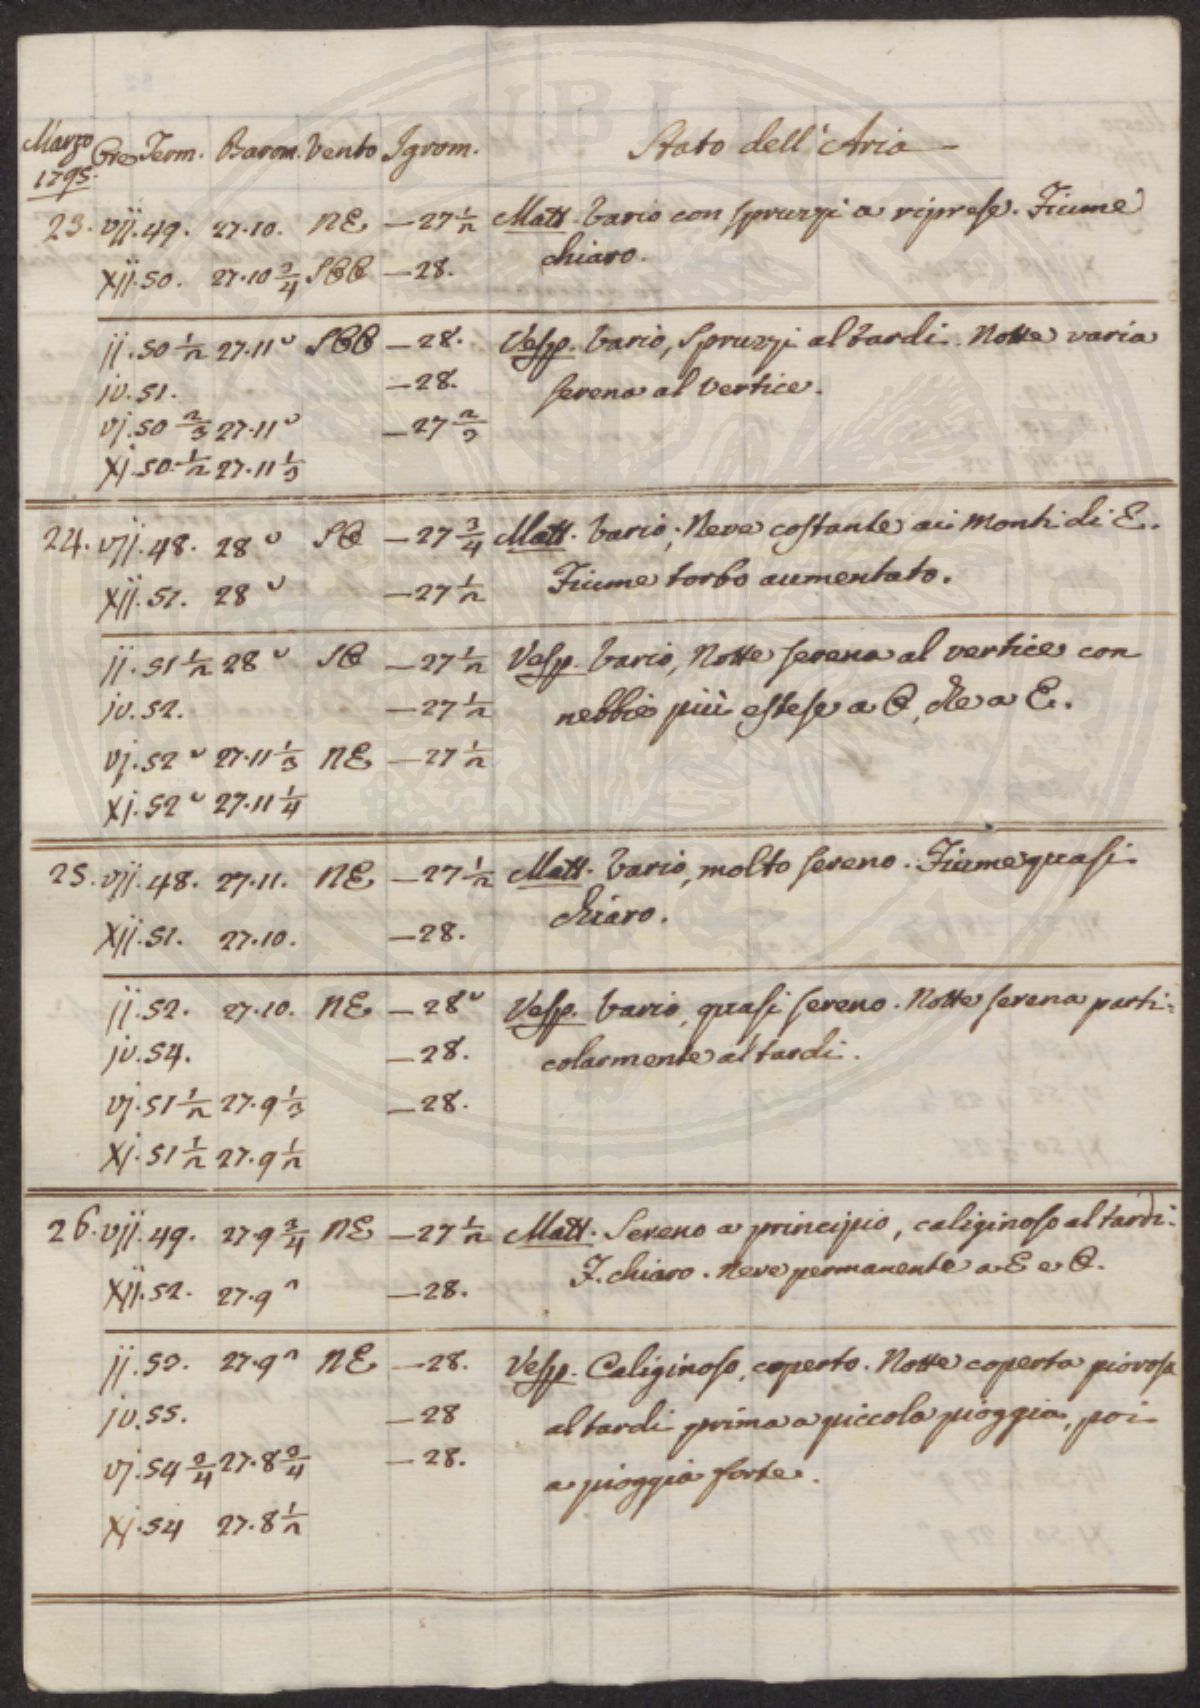 Marzo 1795. Ore Term. Barom. Vento Igrom. Stato dell'Aria
23. vij. 49. 27.10. NE — 27 1/2 Matt. Vario con spruzzi a riprese. Fiume
chiaro.
xij. 50. 27.10 3/4 SOO — 28.
ij. 50 1/2 27.11 ᵕ SOO — 28. Vesp. Vario, Spruzzi al tardi. Notte varia
iv. 51. — 28. serena al vertice.
vj. 50 2/3 27.11 ᵕ — 27 2/3
xj. 50 1/2 27.11 1/3
24. vij. 48. 28 ᵕ SO — 27 3/4 Matt. Vario; Neve costante ai Monti di E.
xij. 51. 28 ᵕ — 27 1/2 Fiume torbo aumentato.
ij. 51 1/2 28 ᵕ SO — 27 1/2 Vesp. Vario, Notte serena al vertice con
iv. 52. — 27 1/2 nebbie più estese a O, che a E.
vj. 52 ᵕ 27.11 1/3 NE — 27 1/2
xj. 52 ᵕ 27.11 1/4
25. vij. 48. 27.11. NE — 27 1/2 Matt. Vario, molto sereno. Fiume quasi
chiaro.
xij. 51. 27.10. — 28.
ij. 52. 27.10. NE — 28 ᵕ Vesp. Vario, quasi sereno. Notte serena parti=
iv. 54. — 28. colarmente al tardi.
vj. 51 1/2 27.9 1/3 — 28.
xj. 51 1/2 27.9 1/2
26. vij. 49. 27.9 3/4 NE — 27 1/2 Matt. Sereno a principio, caliginoso al tardi.
F. chiaro. Neve permanente a E e O.
xij. 52. 27.9 ᴖ — 28.
ij. 53. 27.9 ᴖ NE — 28. Vesp. Caliginoso, coperto. Notte coperta piovosa
iv. 55. — 28 al tardi prima a piccola pioggia, poi
vj. 54 3/4 27.8 3/4 — 28. a pioggia forte.
xj. 54 27.8 1/2